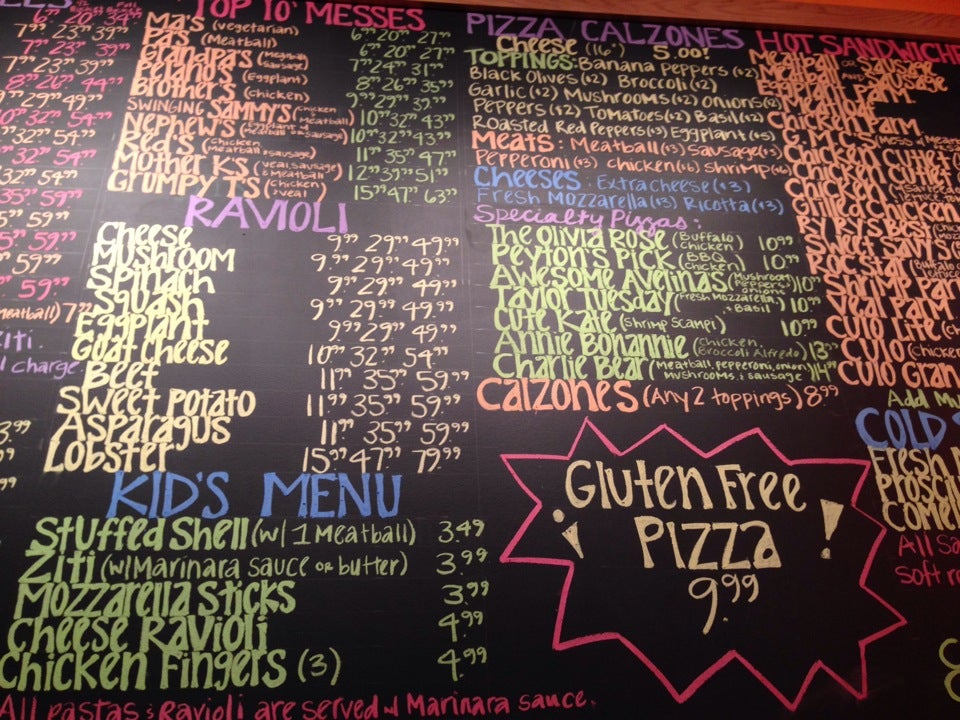 6.99 20.99 34.99
7.99 23.99 39.99
7.99 23.99 39.99
7.99 23.99 39.99
8.99 26.99 44.99
9.99 29.99 49.99
10.99 32.99 54.99
32.99 54.99
32.99 54.99
32.99 54.99
35.99 59.99
59.99
59.99
59.99
59.99
meatball) 7.99
charge
TOP 10 MESSES
Ma's (vegetarian) 6.99 20.99 27.99
Pa's (Meatball) 6.99 20.99 27.99
Grandpa's 7.99 24.99 31.99
Delano's (Eggplant) 8.99 26.99 35.99
Brother's (chicken) 9.99 29.99 39.99
Swinging Sammy's (Chicken Meatball) 10.99 32.99 43.99
Nephew's (Eggplant & Meatball or Sausage) 10.99 32.99 43.99
Red's (Chicken, Meatball & Sausage) 11.99 35.99 47.99
Mother K's (Veal, Sausage & Meatball) 12.99 39.99 51.99
Grumpy T's (Chicken & Veal) 15.99 47.99 63.99
RAVIOLI
Cheese 9.99 29.99 49.99
Mushroom 9.99 29.99 49.99
Spinach 9.99 29.99 49.99
Squash 9.99 29.99 49.99
Eggplant 9.99 29.99 49.99
Goat Cheese 10.99 32.99 54.99
Beef 11.99 35.99 59.99
Sweet Potato 11.99 35.99 59.99
Asparagus 11.99 35.99 59.99
Lobster 15.99 47.99 79.99
KID'S MENU
Stuffed Shell (w/ 1 Meatball) 3.49
Ziti (w/ Marinara Sauce or butter) 3.99
Mozzarella Sticks 3.99
Cheese Ravioli 4.99
Chicken Fingers (3) 4.99
All pastas & Ravioli are served w/ Marinara sauce.
PIZZA / CALZONES
Cheese (16") 5.00!
TOPPINGS: Banana Peppers (+2)
Black Olives (+2) Broccoli (+2)
Garlic (+2) Mushrooms (+2) Onions (+2)
Peppers (+2) Tomatoes (+2) Basil (+2)
Roasted Red Peppers (+3) Eggplant (+5)
Meats: Meatball (+3) Sausage (+3)
Pepperoni (+3) Chicken (+6) Shrimp (+6)
Cheeses: Extra cheese (+3)
Fresh Mozzarella (+3) Ricotta (+3)
Specialty Pizzas:
The Olivia Rose (Buffalo Chicken) 10.99
Peyton's Pick (BBQ Chicken) 10.99
Awesome Avelina's (Mushroom, Peppers & onions) 10.99
Taylor Tuesday (Fresh Mozzarella & Basil) 10.99
Cute Kate (Shrimp Scampi) 10.99
Annie Bonannie (Chicken, Broccoli Alfredo) 13.99
Charlie Bear (Meatball, pepperoni, onion, mushrooms & sausage) 14.99
Calzones (Any 2 toppings) 8.99
Gluten Free
Pizza !
9.99
HOT SANDWICHE
Meatball or Sausage
Eggplant Parm
Meatloaf
Chicken Parm
Chicken Cutlet
Chicken
Grilled Chicken
Ry Ry's Best
Sweet Sav's
Rocstar
Shrimp Par
Veal Parm
Culo Life
Culo (Chicken
Culo Gran
Add Mu
COLD S
Fresh
Prosciu
Come
All Sa
Soft r